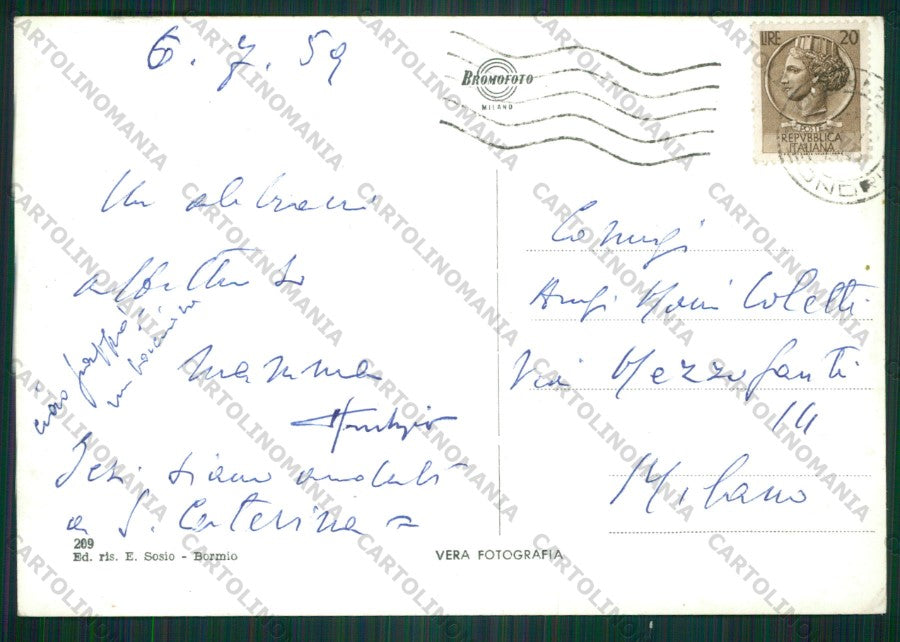 6. 7. 59
Un abbraccio
affettuoso
mamma
ciao pappi
un bacione
Ieri siamo andati
a S. Caterina
209
Ed. ris. E. Sosio - Bormio
VERA FOTOGRAFIA
BROMOFOTO
MILANO
LIRE 20
POSTE
REPVBBLICA
ITALIANA
Coniugi
Coletti
Via Mezzofanti
14
Milano
CARTOLINOMANIA